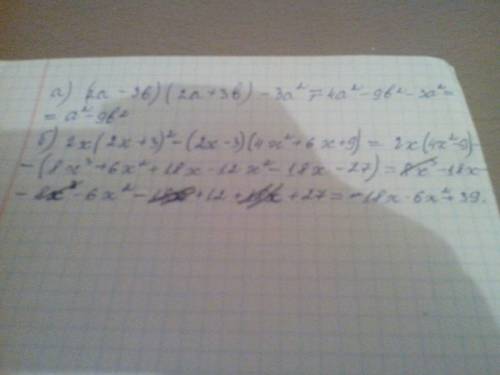 а) (2a - 3b)(2a + 3b) - 3a² = 4a² - 9b² - 3a² =
= a² - 9b²
б) 2x(2x+3)² - (2x-3)(4x²+6x+9) = 2x(4x²-9) -
- (8x³+6x²+18x-12x²-18x-27) = 8x³ - 18x -
- 8x³ - 6x² - 18x + 12 + 18x + 27 = -18x - 6x² + 39.